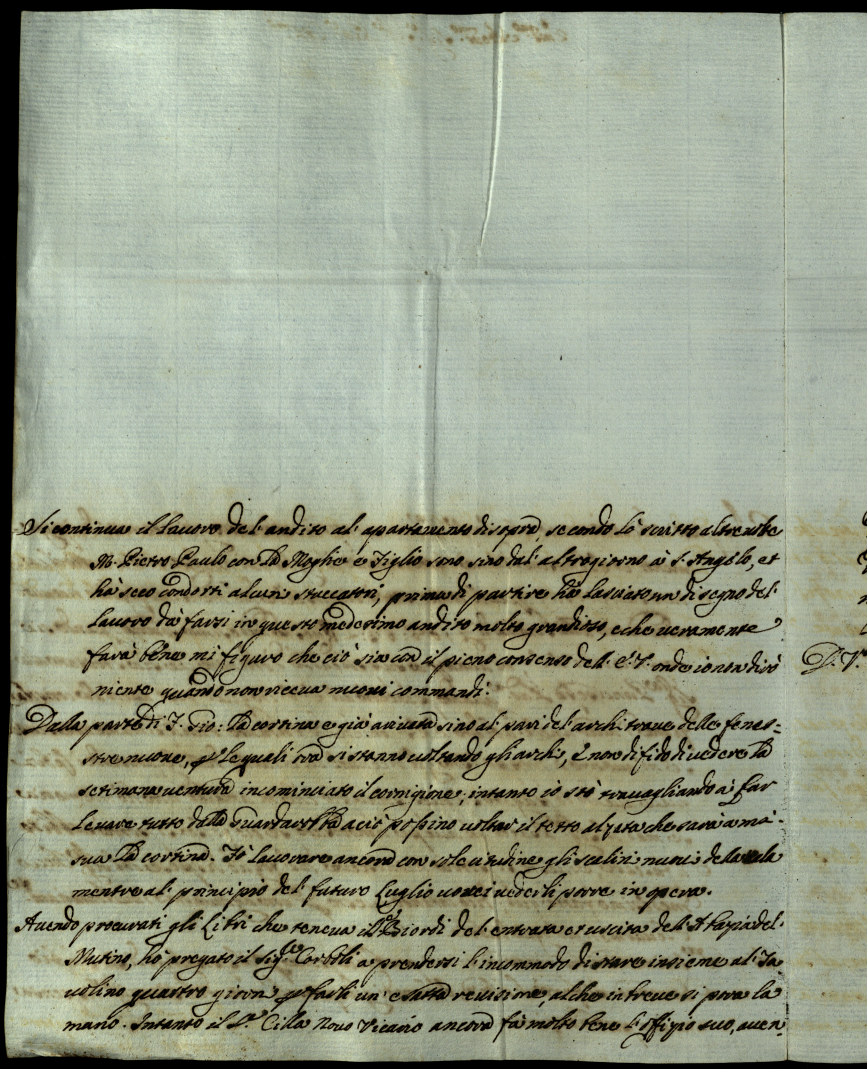 Si continua il lauoro del' andito al' apartamento di sopra, secondo lo scritto altre uolte
M. Pietro Paulo con la Moglie e Figlio sono sino dal' altro giorno à S. Angelo, et
hà seco condotti alcuni stuccatori, prima di partire hà lasciato un disegno del'
lauoro da farsi in questo medesimo andito molto grandioso, e che ueramente
farà bene mi figuro che ciò sia con il pieno consenso dell' E. V. onde io non dirò
niente quando non riceua nuoui commandi.
Dalla parte di S. Gio: la cortina e già ariuata sino al' pari del' architraue delle fenes=
stre nuoue, per le quali ora si stanno uoltando gli archi, e non difido di uedere la
setimana uentura incominciato il cornigione, intanto io stò trauagliando à far
leuare tutto dalla Guardarobba aciò possino uoltar il tetto alzata che sarà a mi-
sura la cortina. Fò lauorare ancora con solecitudine gli scalini nuoui della scala
mentre al' principio del' futuro Luglio uorei uederli porre in opera.
Auendo procurati gli Libri che teneua il Biordi del' entrata et uscita dell' Abazia del'
Mutino, hò pregato il Sig.re Corboli a prendersi l' incommodo di stare insieme al' Ta
uolino quattro giorni per farli un' esatta reuisione, al che in breue si porrà la
mano. Intanto il S.r Cilla Nouo Vicario ancora fà molto bene l' offizio suo, auen
D. V.